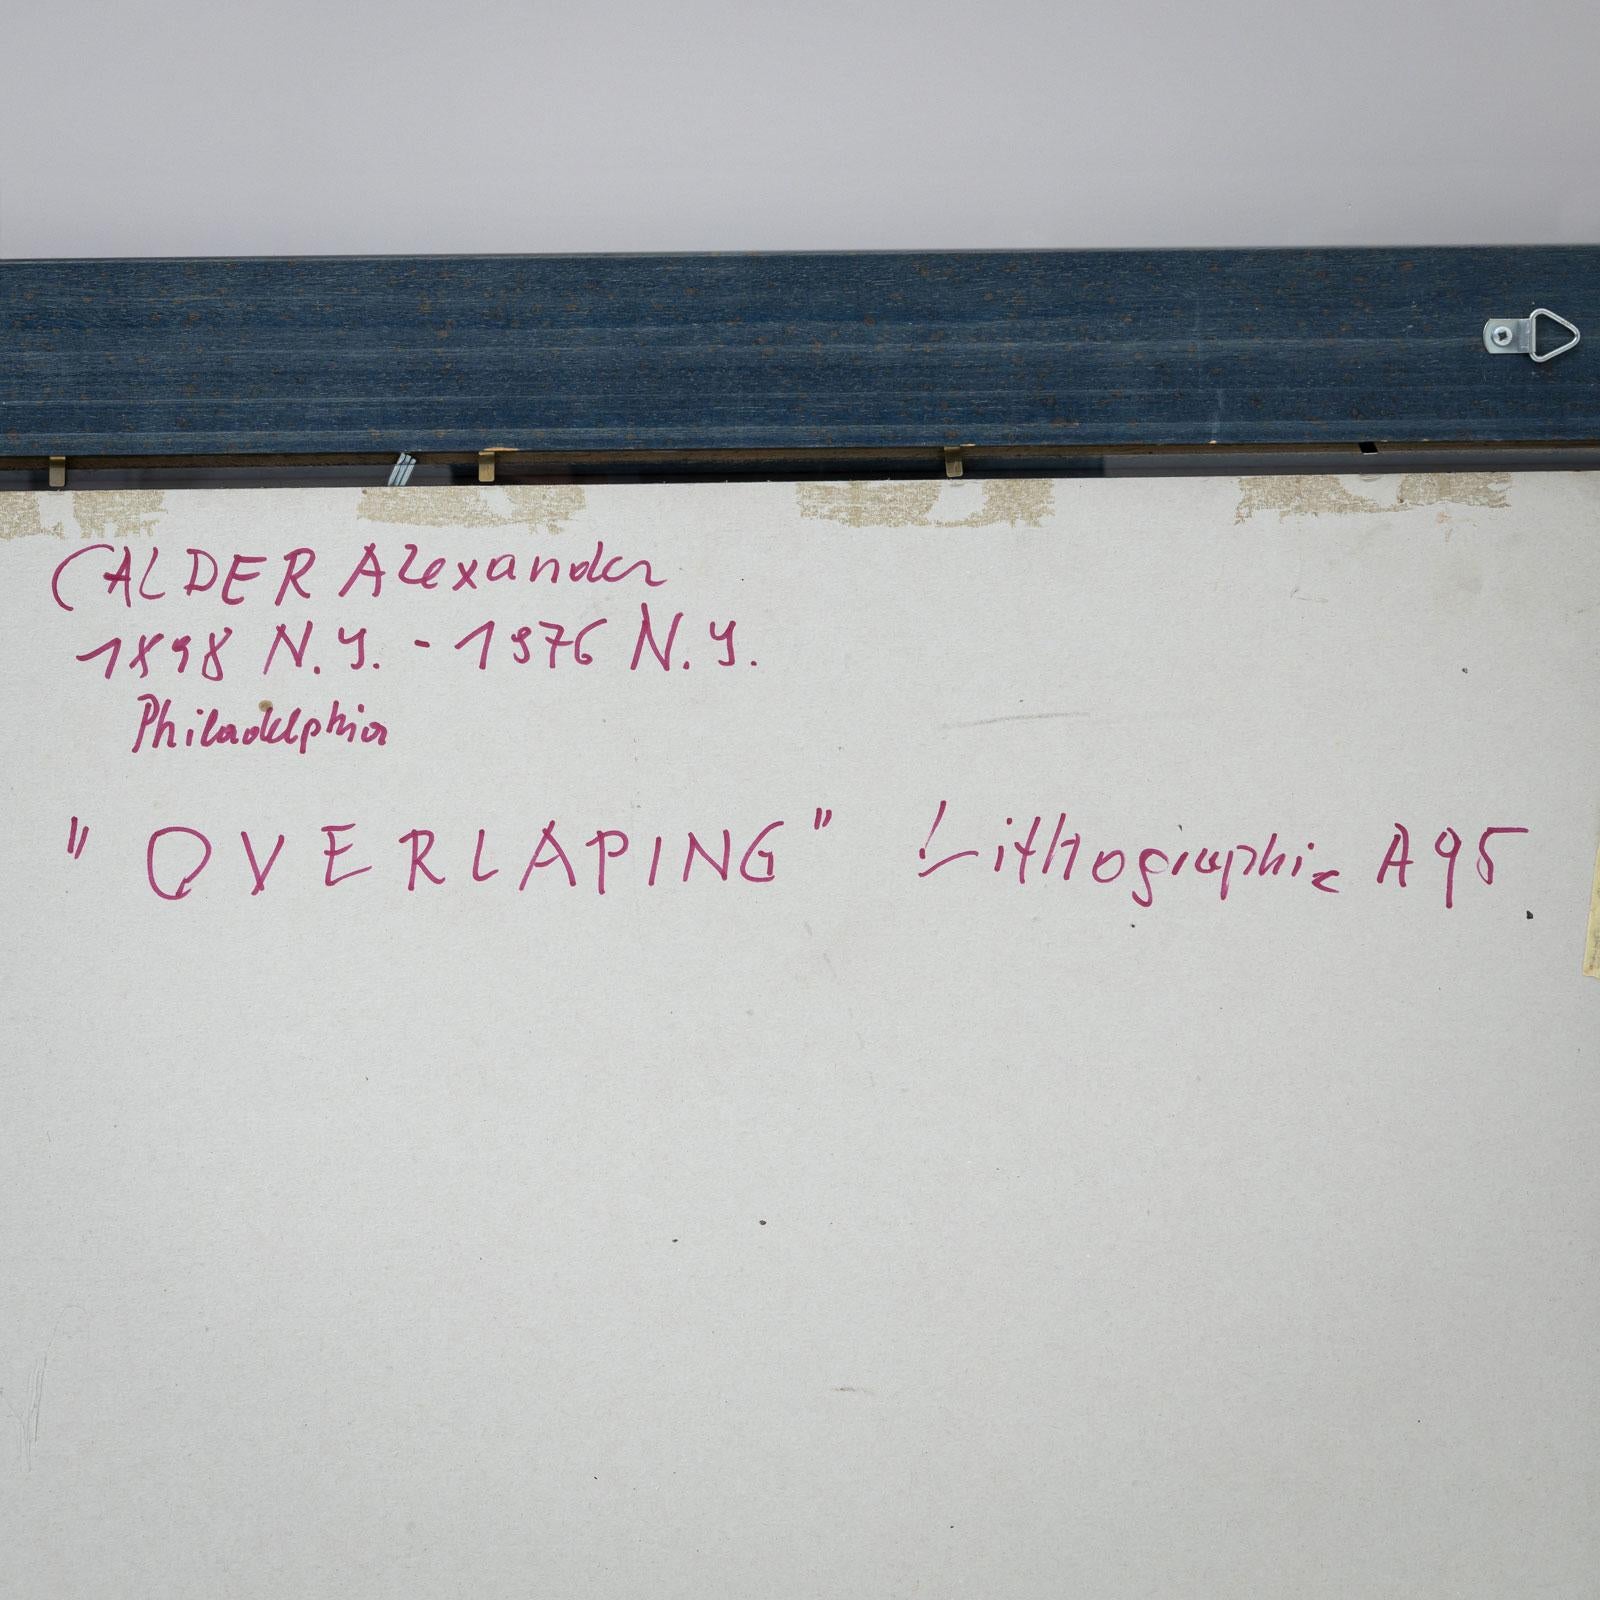 CALDER Alexander
1898 N.Y. - 1976 N.Y.
Philadelphia
"OVERLAPING" Lithographie A95